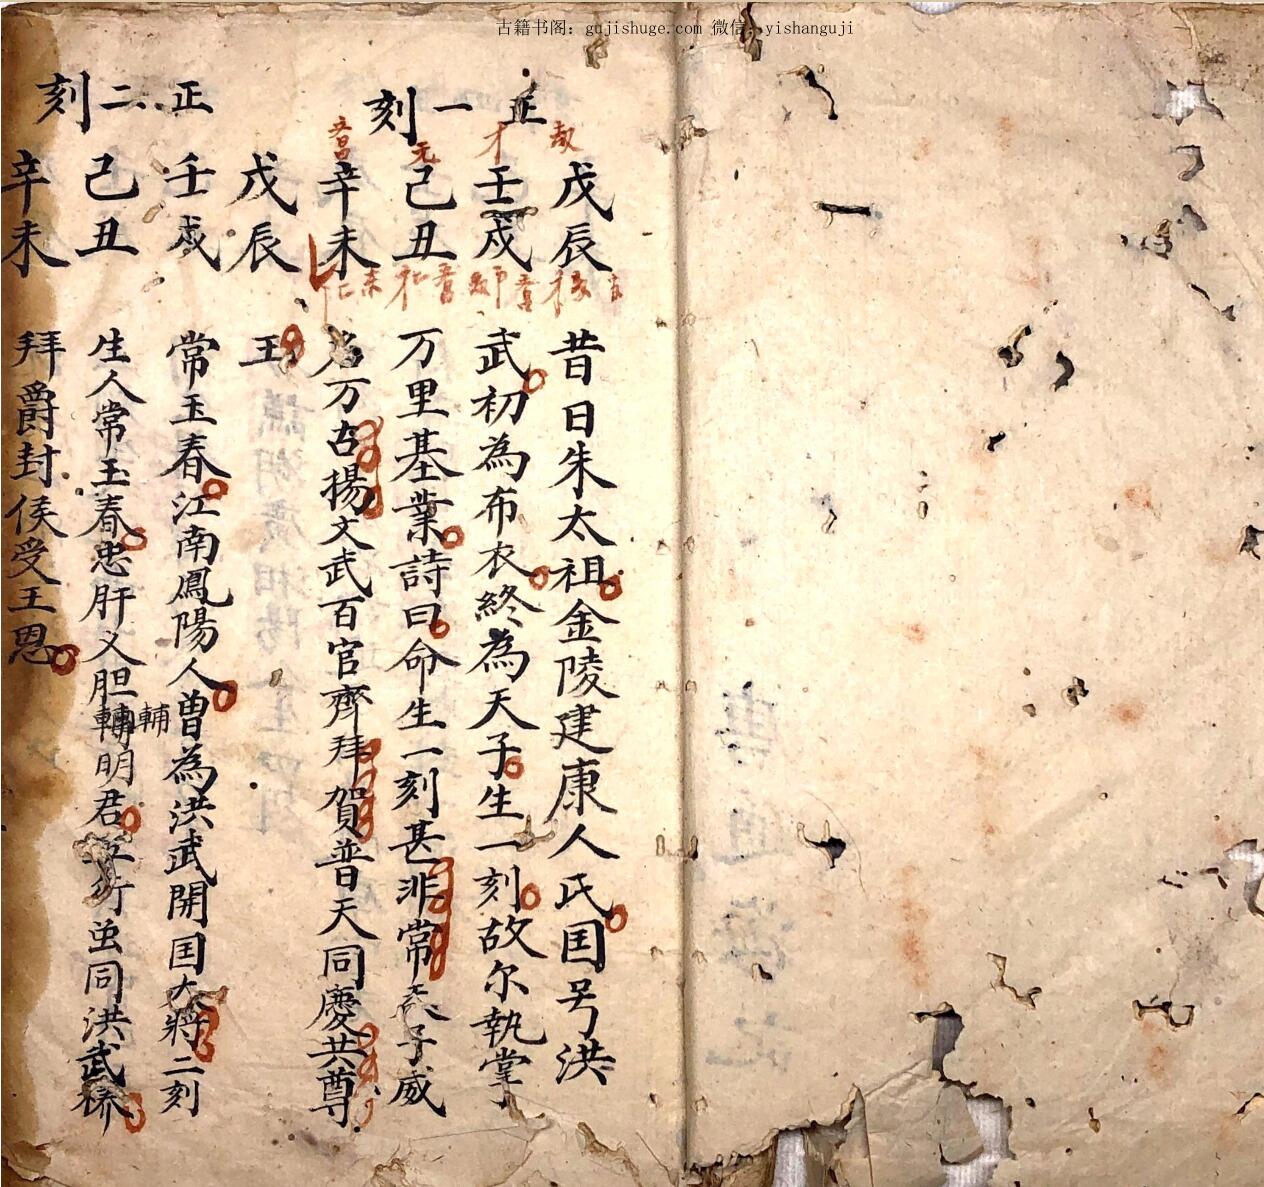 古籍书阁：gujishuge.com 微信：yishanguji
正一刻
戊辰 昔日朱太祖金陵建康人氏国号洪
壬戌 武初為布衣終為天子生一刻故尔執掌
己丑 万里基業詩曰命生一刻甚非常天子威
辛未 万古揚文武百官齊拜賀普天同慶共尊
戊辰 王
正二刻
壬戌 常玉春江南鳳陽人曽為洪武開国大將二刻
己丑 生人常玉春忠肝义胆輔明君同洪武
輔
辛未 拜爵封侯受王恩